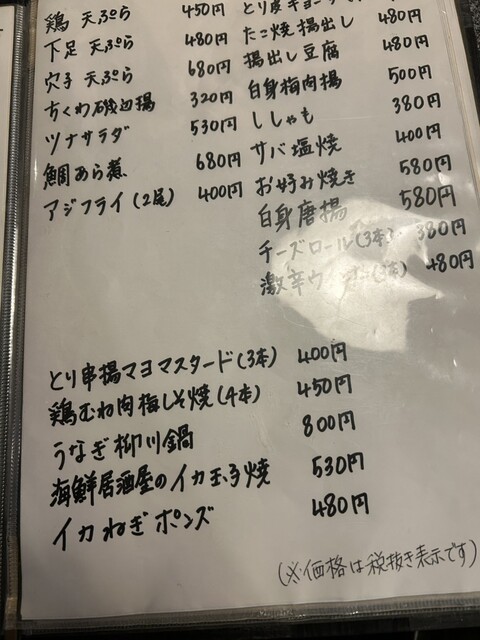 鶏 天ぷら 450円
下足 天ぷら 480円
穴子 天ぷら 680円
ちくわ磯辺揚 320円
ツナサラダ 530円
鯛あら煮 680円
アジフライ(2尾) 400円
とり皮ギョー
たこ焼揚出し 480円
揚出し豆腐 480円
白身梅肉揚 500円
ししゃも 380円
サバ塩焼 400円
お好み焼き 580円
白身唐揚 580円
チーズロール(3本) 380円
激辛ウ 480円
とり串揚マヨマスタード(3本) 400円
鶏むね肉梅しそ焼(4本) 450円
うなぎ柳川鍋 800円
海鮮居酒屋のイカ玉子焼 530円
イカねぎポンズ 480円
(※価格は税抜き表示です)